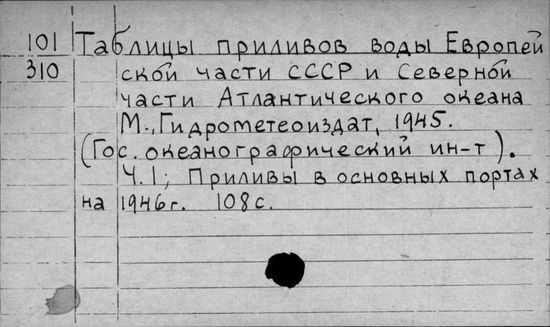 101 Таблицы приливов воды Европей
310 ской части СССР и Северной
части Атлантического океана
М., Гидрометеоиздат, 1945.
(Гос. океанографический ин-т).
Ч.1; Приливы в основных портах
на 1946г. 108с.